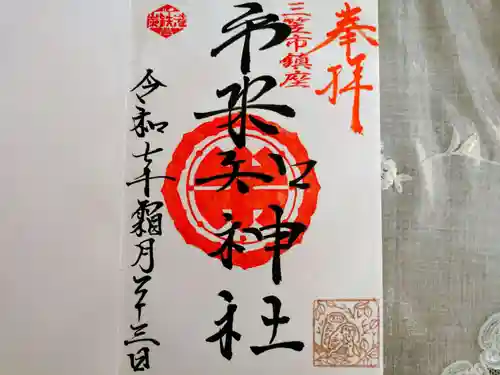 奉拝
三笠市鎮座
市来知神社
令和七年霜月二十三日
炭鉄港